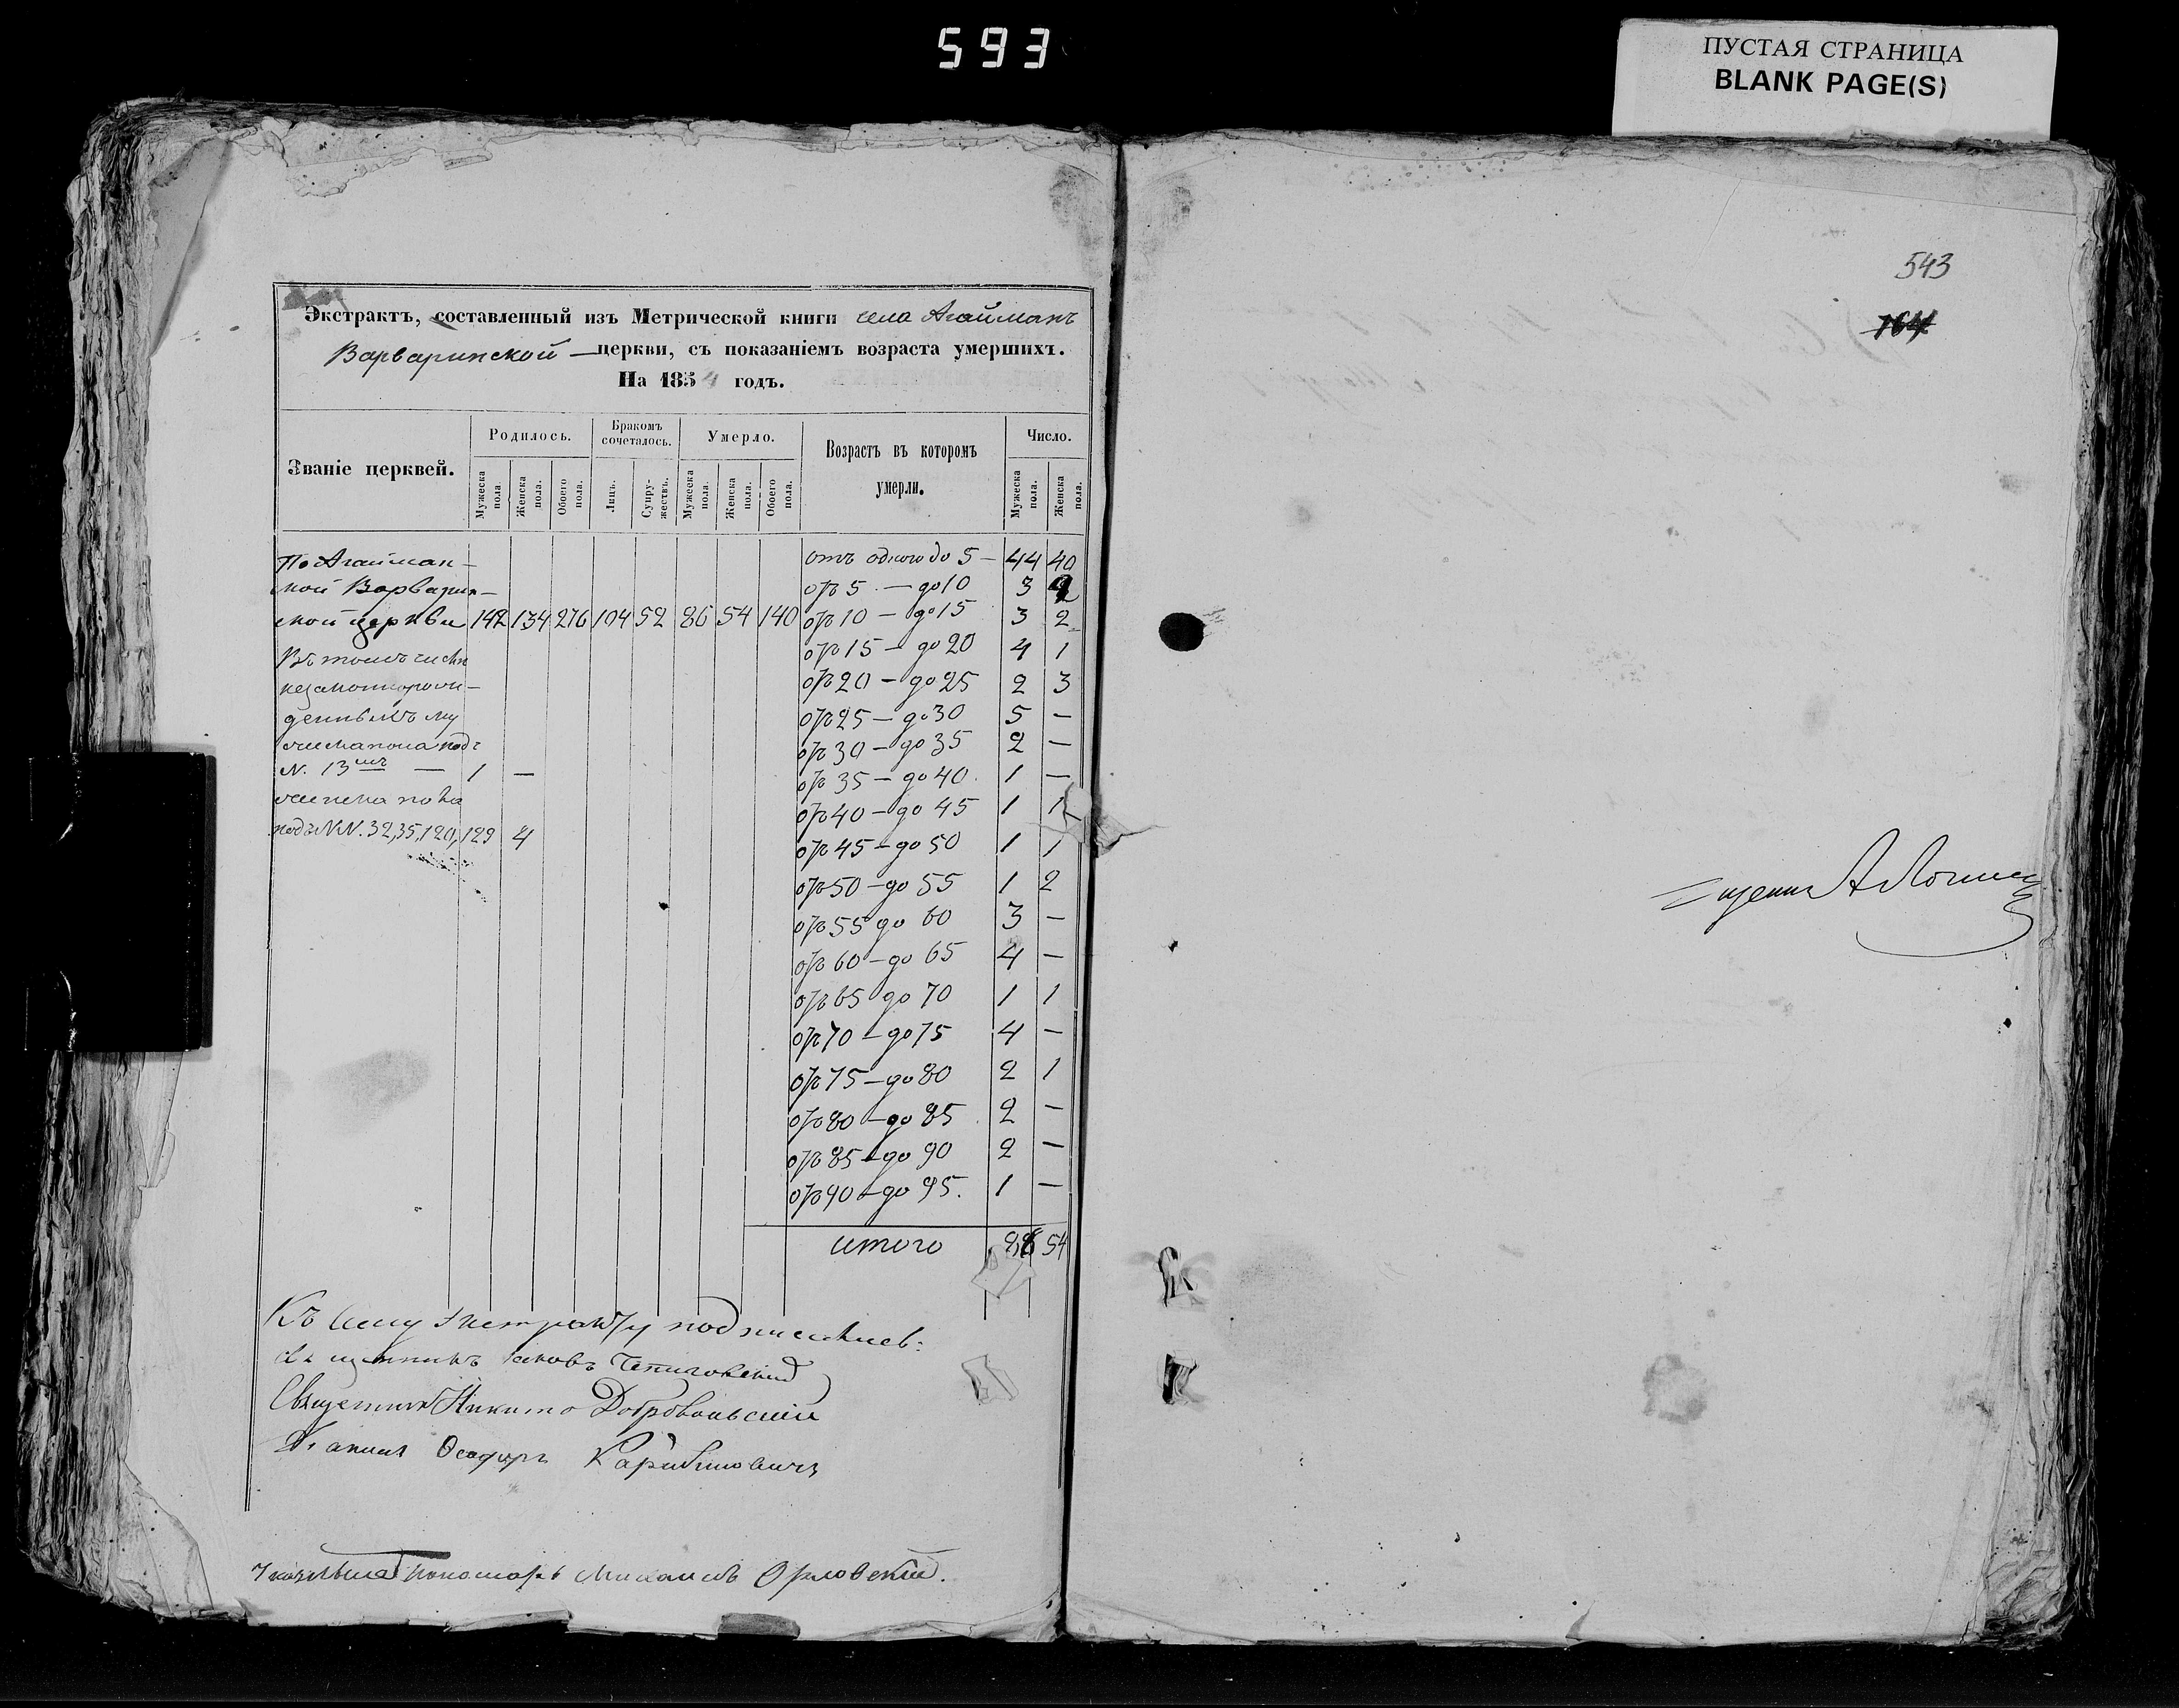 593
ПУСТАЯ СТРАНИЦА
BLANK PAGE(S)
Экстрактъ, составленный изъ Метрической книги села Агайманъ
Варваринской — церкви, съ показаніемъ возраста умершихъ.
На 1854 годъ.
Званіе церквей.
Родилось.
Бракомъ сочеталось.
Умерло.
Возрастъ въ которомъ умерли.
Число.
Мужеска пола.
Женска пола.
Обоего пола.
Лицъ.
Супружествъ.
Мужеска пола.
Женска пола.
Обоего пола.
Мужеска пола.
Женска пола.
По Агайман-
ской Варварин-
ской церкви 142 134 276 104 52 86 54 140
Въ томъ числѣ
незаконнорож-
денныхъ му
жеска пола подъ
N. 13мъ — 1 —
женска пола
подъ NN. 32, 35, 120, 129 4
отъ одного до 5 — 44 40
отъ 5 — до 10 3 2
отъ 10 — до 15 3 2
отъ 15 — до 20 4 1
отъ 20 — до 25 2 3
отъ 25 — до 30 5 —
отъ 30 — до 35 2 —
отъ 35 — до 40 1 —
отъ 40 — до 45 1 1
отъ 45 — до 50 1 1
отъ 50 — до 55 1 2
отъ 55 до 60 3 —
отъ 60 — до 65 4 —
отъ 65 до 70 1 1
отъ 70 — до 75 4 —
отъ 75 — до 80 2 1
отъ 80 — до 85 2 —
отъ 85 — до 90 2 —
отъ 90 — до 95. 1 —
итого 86 54
Къ сему экстракту подписались:
Священникъ Іаковъ
Священникъ Никита Добровольскій
Діаконъ Ѳеодоръ
Пономарь Михаилъ Орловскій.
543
164